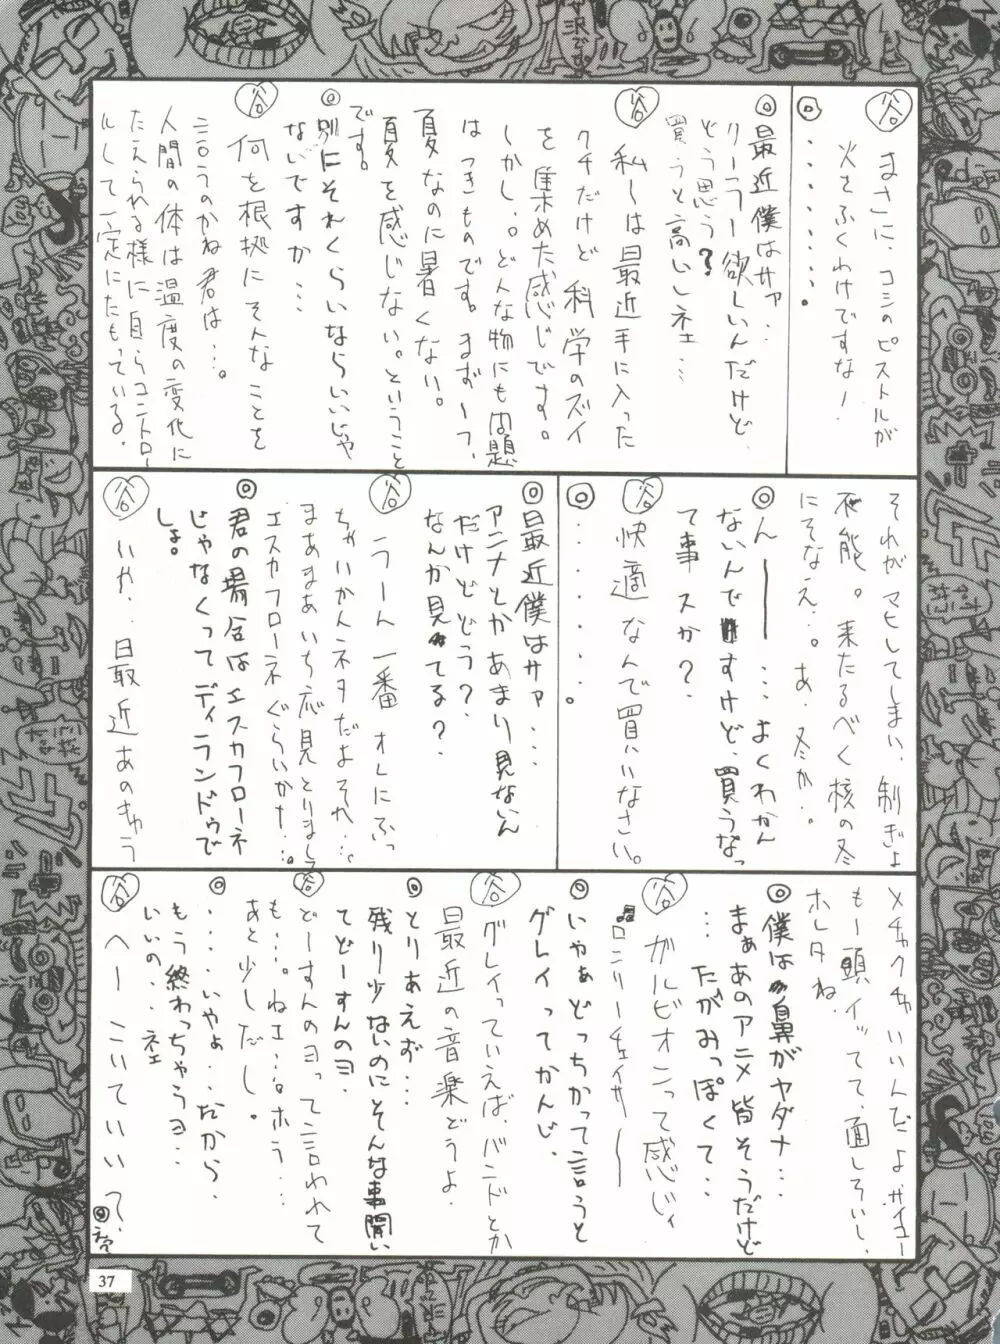 谷 まさに、コミのピストルが
火をふくわけですな!
◎・・・・・・・・・。
◎最近僕はサァ…
リーラー欲しいんだけど、
どう思う?
買うと高いしネェ…
谷 私しは最近手に入った
クチだけど科学のズイ
を集めた感じです。
しかし。。どんな物にも問題
はつきものです。まず一つ、
夏なのに暑くない。
夏を感じない。ということ
です。
◎別にそれくらいならいいじゃ
ないですか…
谷 何を根拠にそんなことを
言うのかね君は…。
人間の体は温度の変化に
たえられる様に自らコントロー
ルして一定にたもっている。
それがマヒしてしまい、制ぎょ
不能。来たるべく核の冬
にそなえ…。あ、冬か。
◎んーーー…よくわかん
ないんですけど、買うなっ
て事スか?
谷 快適なんで買いなさい。
◎・・・・・・・。
◎最近僕はサァ…
アニメとかあまり見ないん
だけどどう?
なんか見てる?
谷 うーん一番オレにふっ
ちゃいかんネタだよそれ…。
まあまあいち応見とりまして
エスカフローネぐらいか†…。
◎君の場合はエスカフローネ
じゃなくってディランドゥで
しょ。
谷 いや…日最近あのきゅう
メチャクチャいいんだよ、サイコー
もー頭イッてて、面しろいし、
ホレタね。
◎僕は鼻がヤダナ…
まぁあのアニメ皆そうだけど
…たがみっぽくて…
谷 ガルビオンって感じィ
♫ロンリーチェイサーー
◎いやぁどっちかって言うと
グレイってかんじ
谷 グレイっていえばバンドとか
最近の音楽どうよ。
◎とりあえず…
残り少ないのにそんな事聞い
てどーすんのヨ。
谷 どーすんのヨって言われて
も…。ねェ…。ホラ…
あと少しだし。
◎・・・・いやょ・・だから、
もう終わっちゃうヨ…
いいの…ネェ
谷 へー こいていいっ?
37